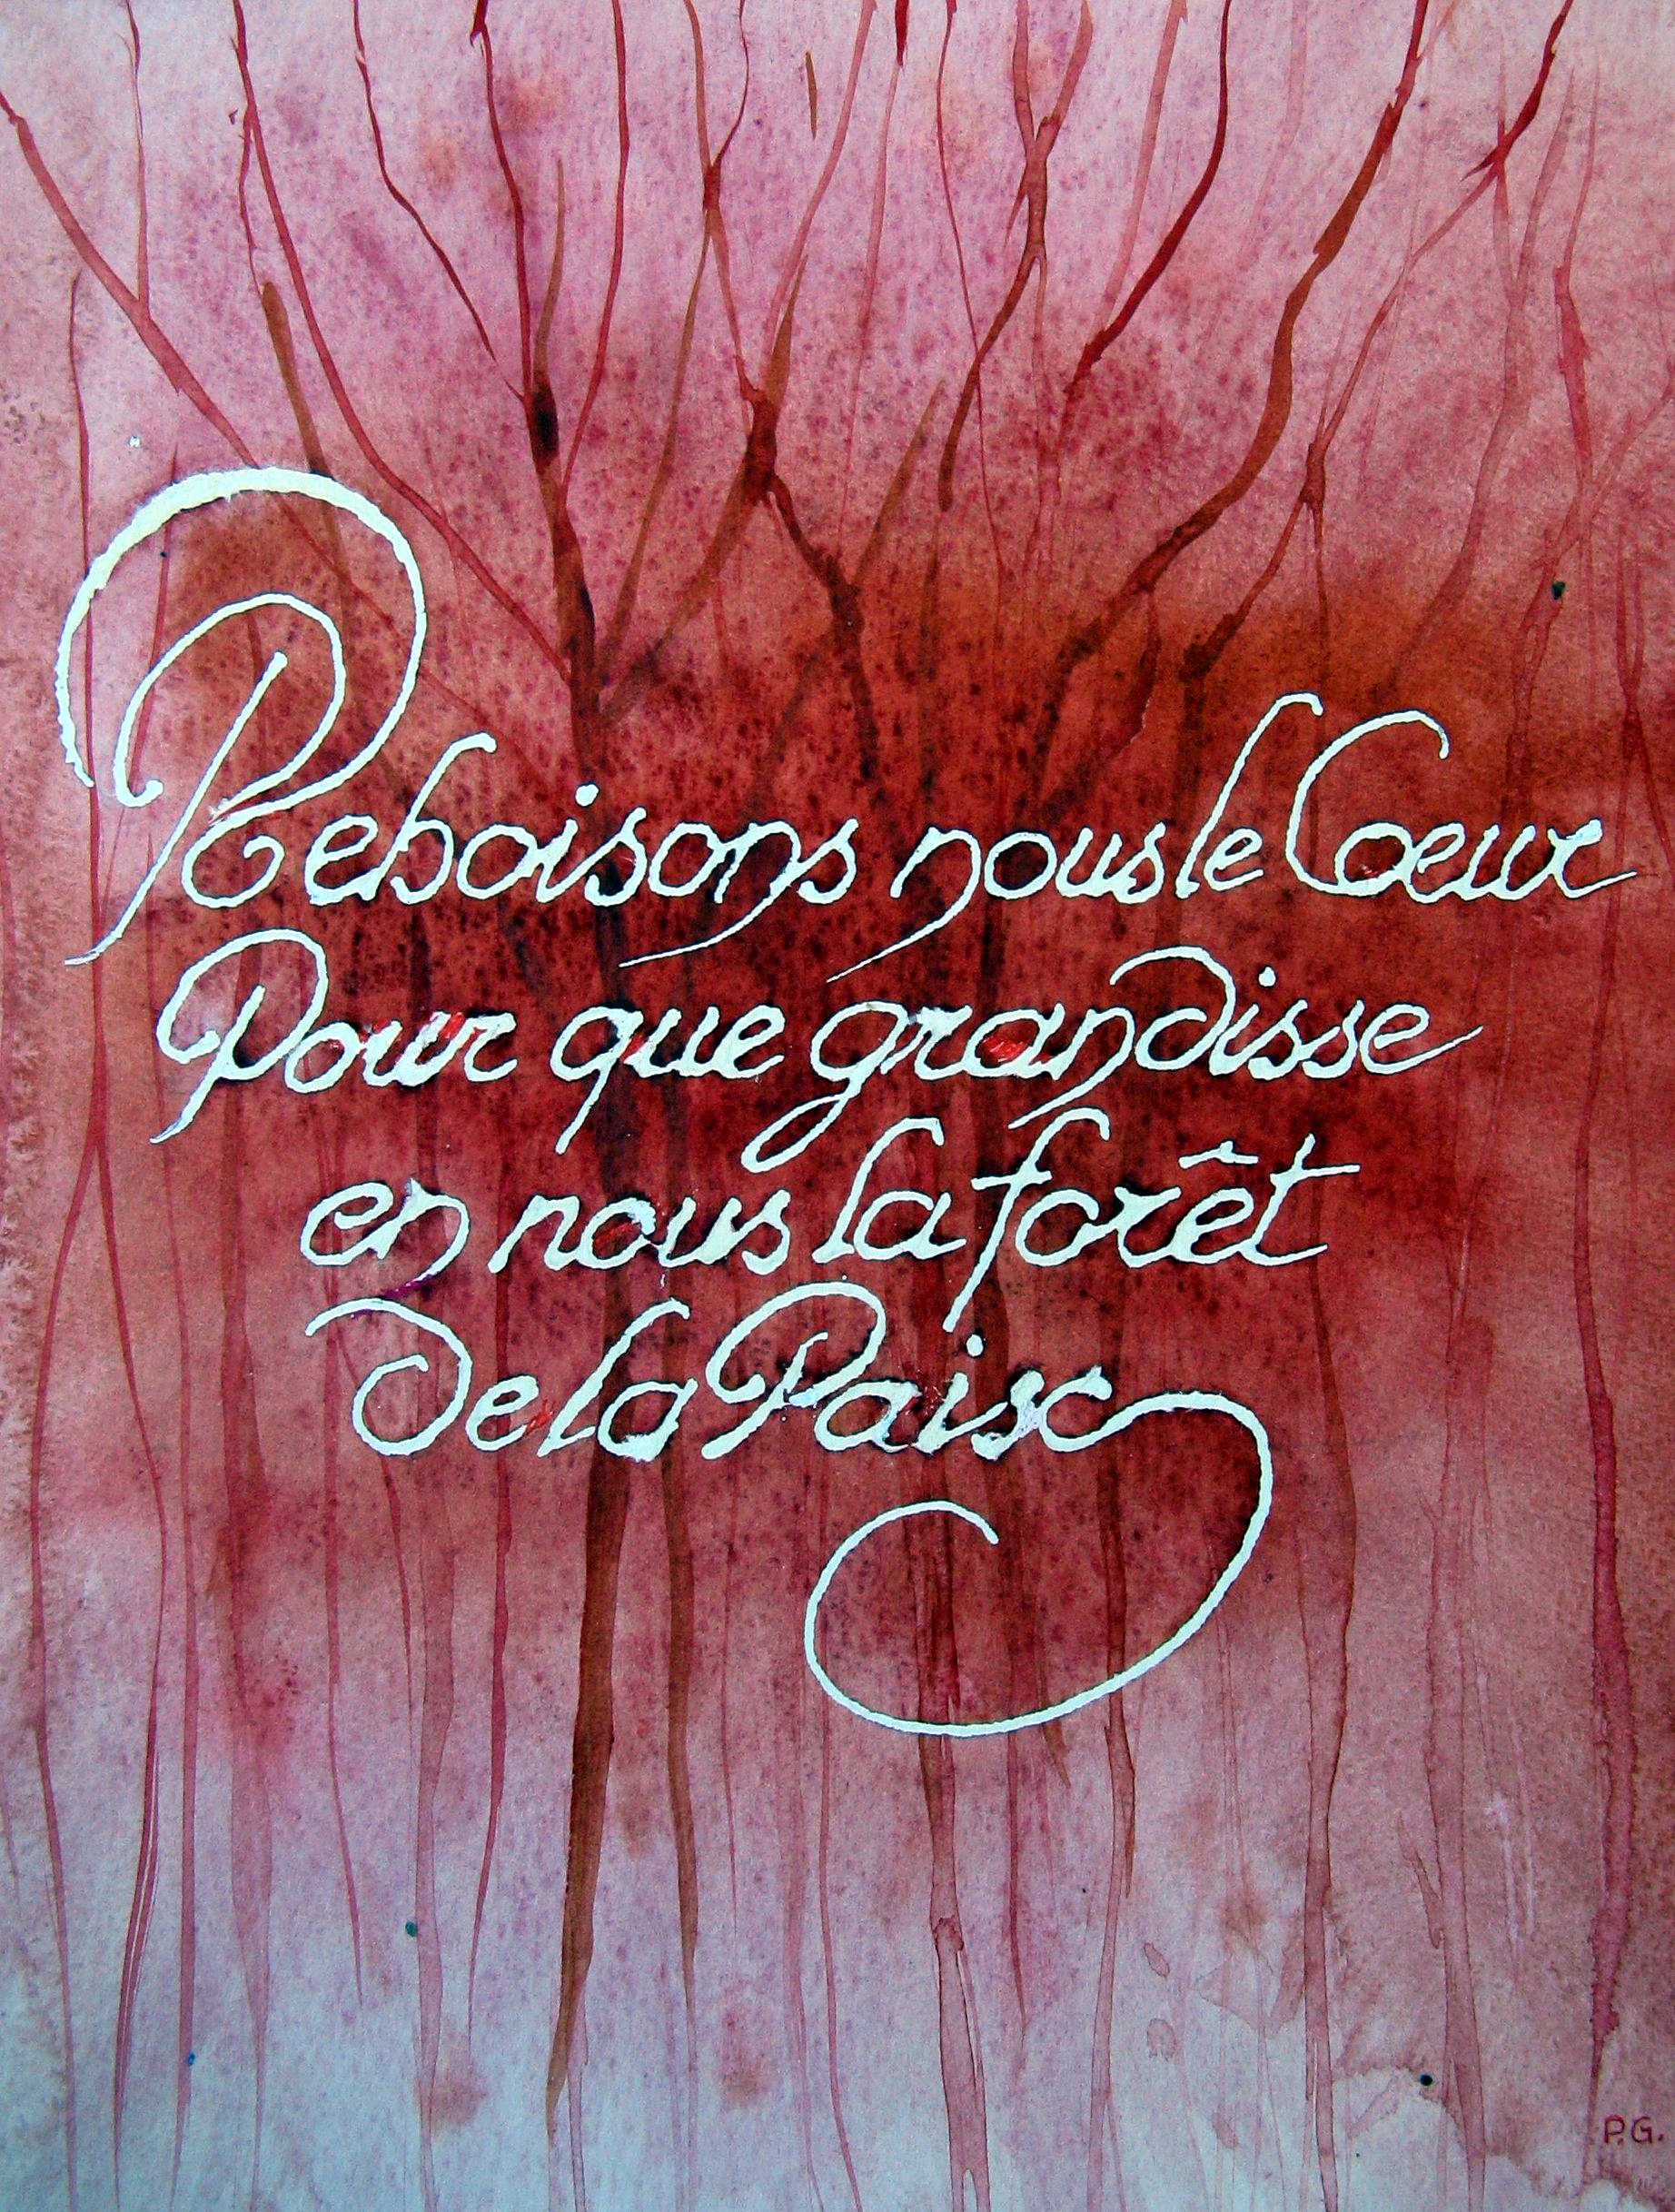 Reboisons nous le Coeur
Pour que grandisse
en nous la forêt
De la Paix
P.G.